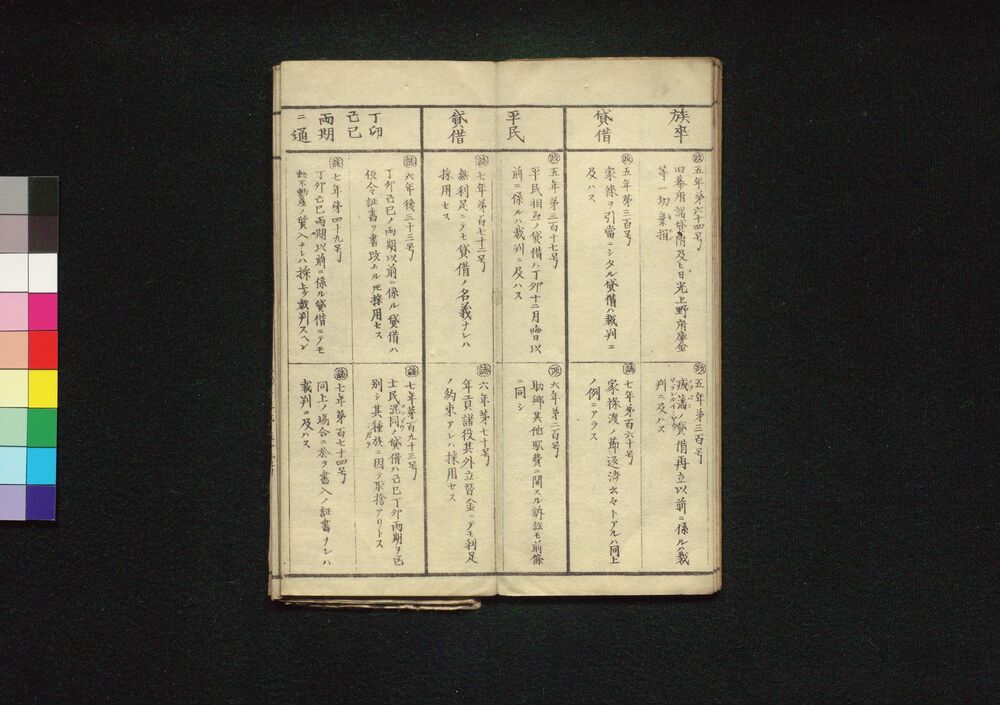 族卒
貸借
平民
貸借
丁卯
己巳
両期
ニ通
政
五年第六十四号
旧幕府諸貸附及ヒ日光上野府庫金
等一切棄捐
政
五年第三百号
家禄ヲ引當ニシタル貸借ハ裁判ニ
及ハス
政
五年第三百十七号
平民相互ノ貸借ハ丁卯十二月晦日以
前ニ係ルハ裁判ニ及ハス
誌
七年第百七十二号
無利足ニテモ貸借ノ名義ナレハ
採用セス
誌
六年後三十三号
丁卯己巳ノ両期以前ニ係ル貸借ハ
仮令証書ヲ書改ムルモ採用セス
誌
七年第四十九号
丁卯己巳両期以前ニ係ル貸借ニテモ
動不動産ノ質入ナレハ採上ケ裁判スヘシ
政
五年第三百号
藩ノ貸借再立以前ニ係ルハ裁
判ニ及ハス
誌
七年第百六十号
家禄渡ノ節返済云々トアルハ同上
ノ例ニアラス
政
六年第二百号
助郷其他駅費ニ関スル訴訟モ前條
ニ同シ
誌
六年第七十号
年貢諸役其外立替金ニテモ利足
ノ約束アレハ採用セス
誌
七年第百九十三号
士民混同ノ貸借ハ己巳丁卯両期ヲ区
別シ其種族ニ因テ取捨アリトス
誌
七年第百七十四号
同上ノ場合ニ於ヲ書入ノ証書ナレハ
裁判ニ及ハス